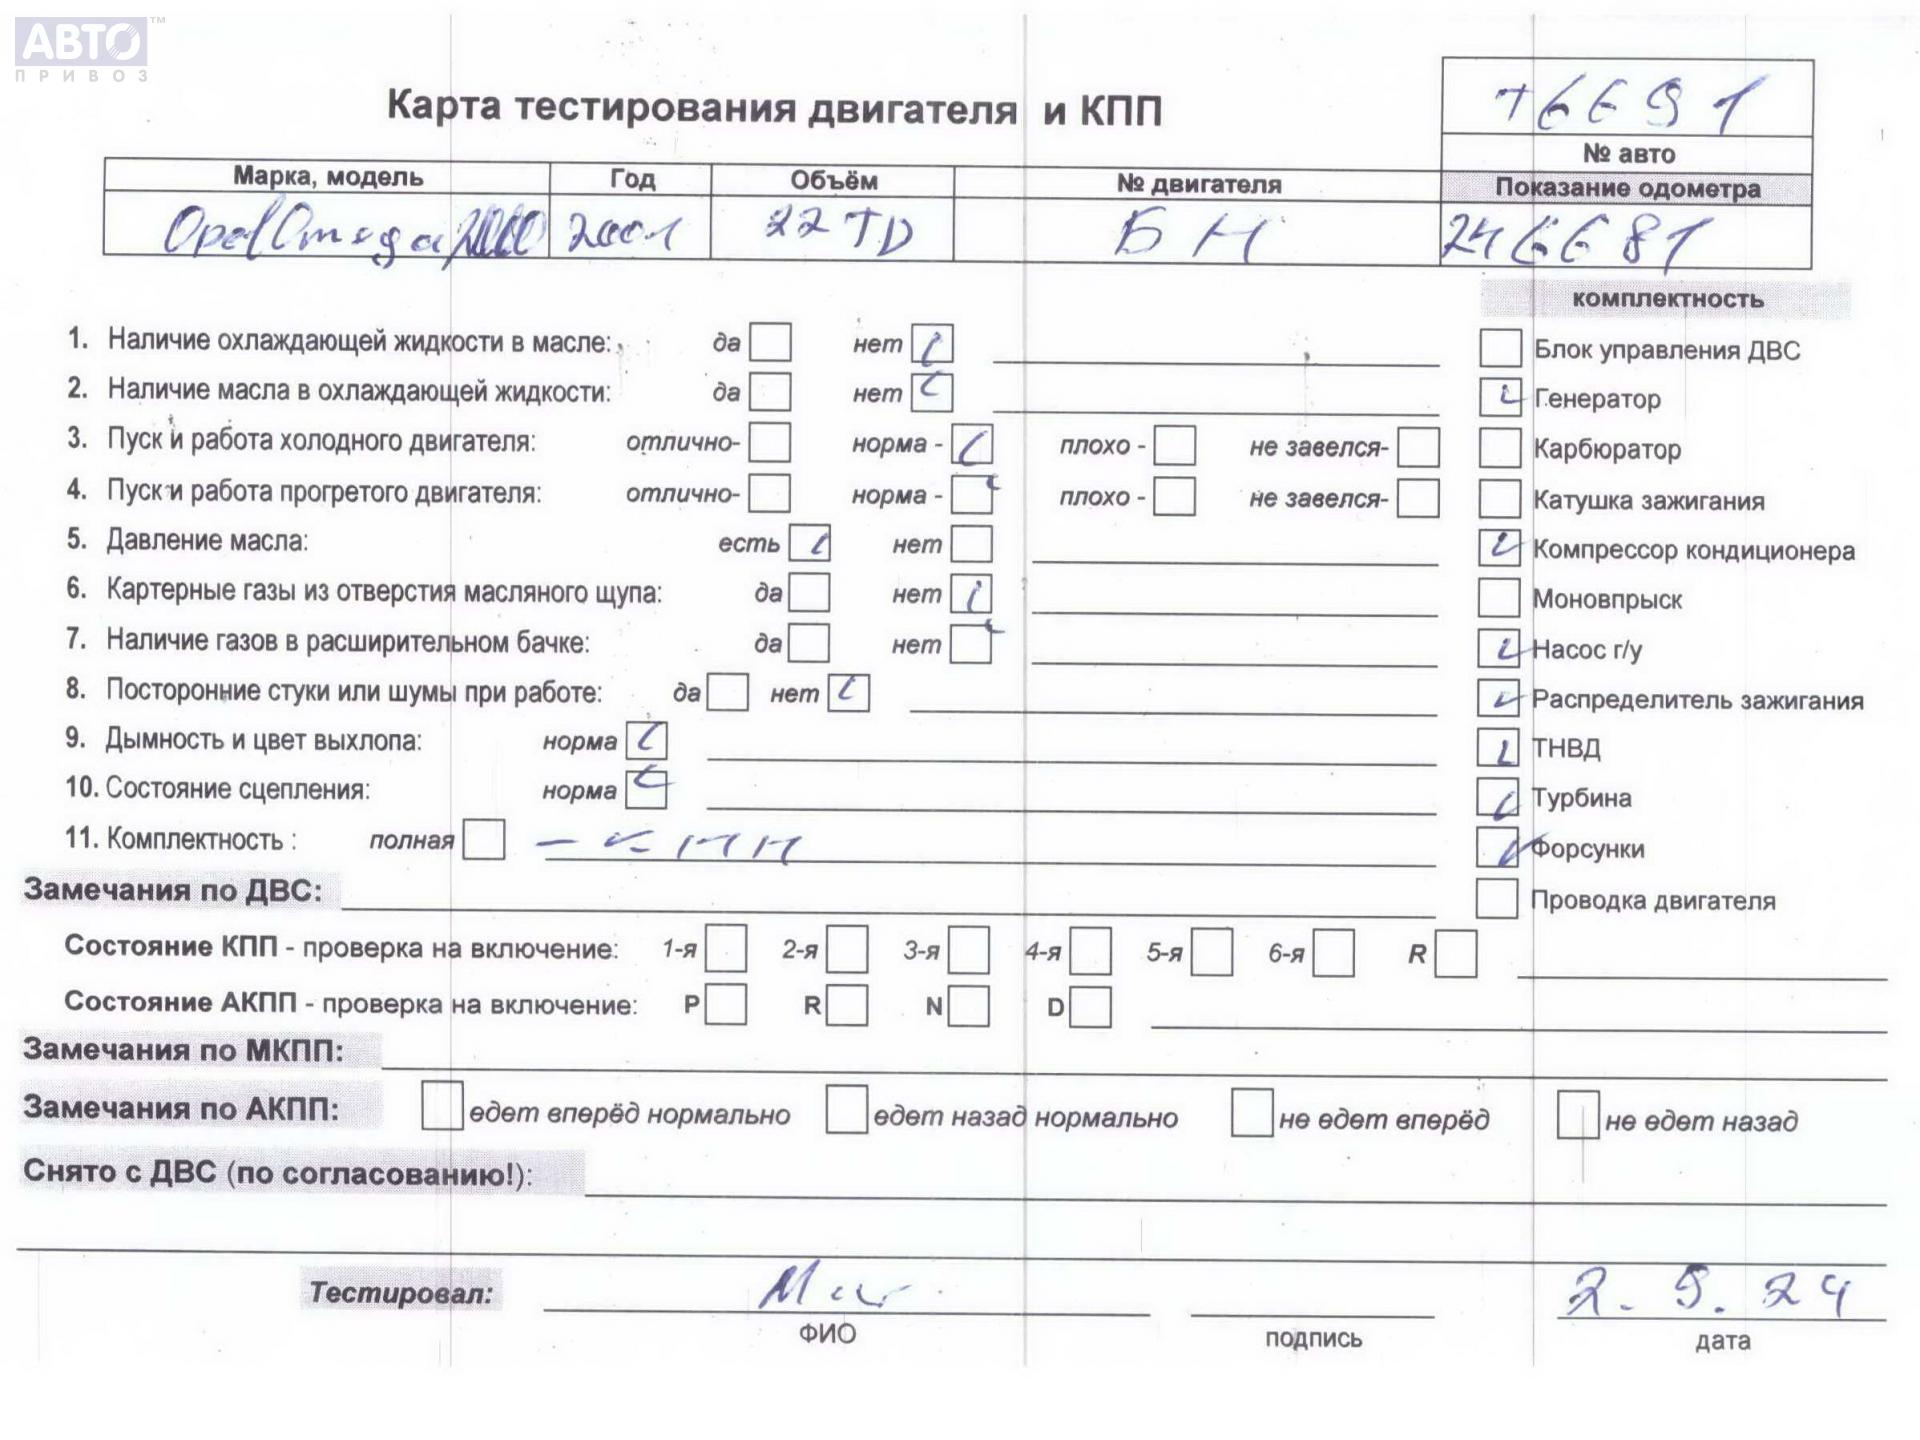 АВТО™
ПРИВОЗ
Карта тестирования двигателя и КПП
76691
№ авто
Марка, модель Год Объём № двигателя Показание одометра
Opel Omega 2001 22TD БН 246681
комплектность
1. Наличие охлаждающей жидкости в масле: да нет Блок управления ДВС
2. Наличие масла в охлаждающей жидкости: да нет Генератор
3. Пуск и работа холодного двигателя: отлично- норма - плохо - не завелся- Карбюратор
4. Пуск и работа прогретого двигателя: отлично- норма - плохо - не завелся- Катушка зажигания
5. Давление масла: есть нет Компрессор кондиционера
6. Картерные газы из отверстия масляного щупа: да нет Моновпрыск
7. Наличие газов в расширительном бачке: да нет Насос г/у
8. Посторонние стуки или шумы при работе: да нет Распределитель зажигания
9. Дымность и цвет выхлопа: норма ТНВД
10. Состояние сцепления: норма Турбина
11. Комплектность : полная Форсунки
Замечания по ДВС: Проводка двигателя
Состояние КПП - проверка на включение: 1-я 2-я 3-я 4-я 5-я 6-я R
Состояние АКПП - проверка на включение: P R N D
Замечания по МКПП:
Замечания по АКПП: едет вперёд нормально едет назад нормально не едет вперёд не едет назад
Снято с ДВС (по согласованию!):
Тестировал: 2.9.24
ФИО подпись дата